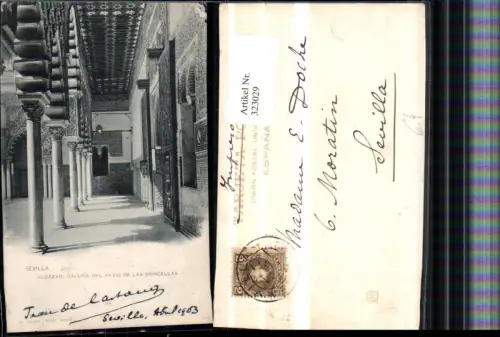 SEVILLA
ALCÁZAR: GALERÍA DEL PATIO DE LAS DONCELLAS
Sevilla, Abril 1903
Artikel Nr.
323029
Impreso
UNIÓN POSTAL UNIV
ESPAÑA
Madame E. Doche
6. Moratin
Sevilla